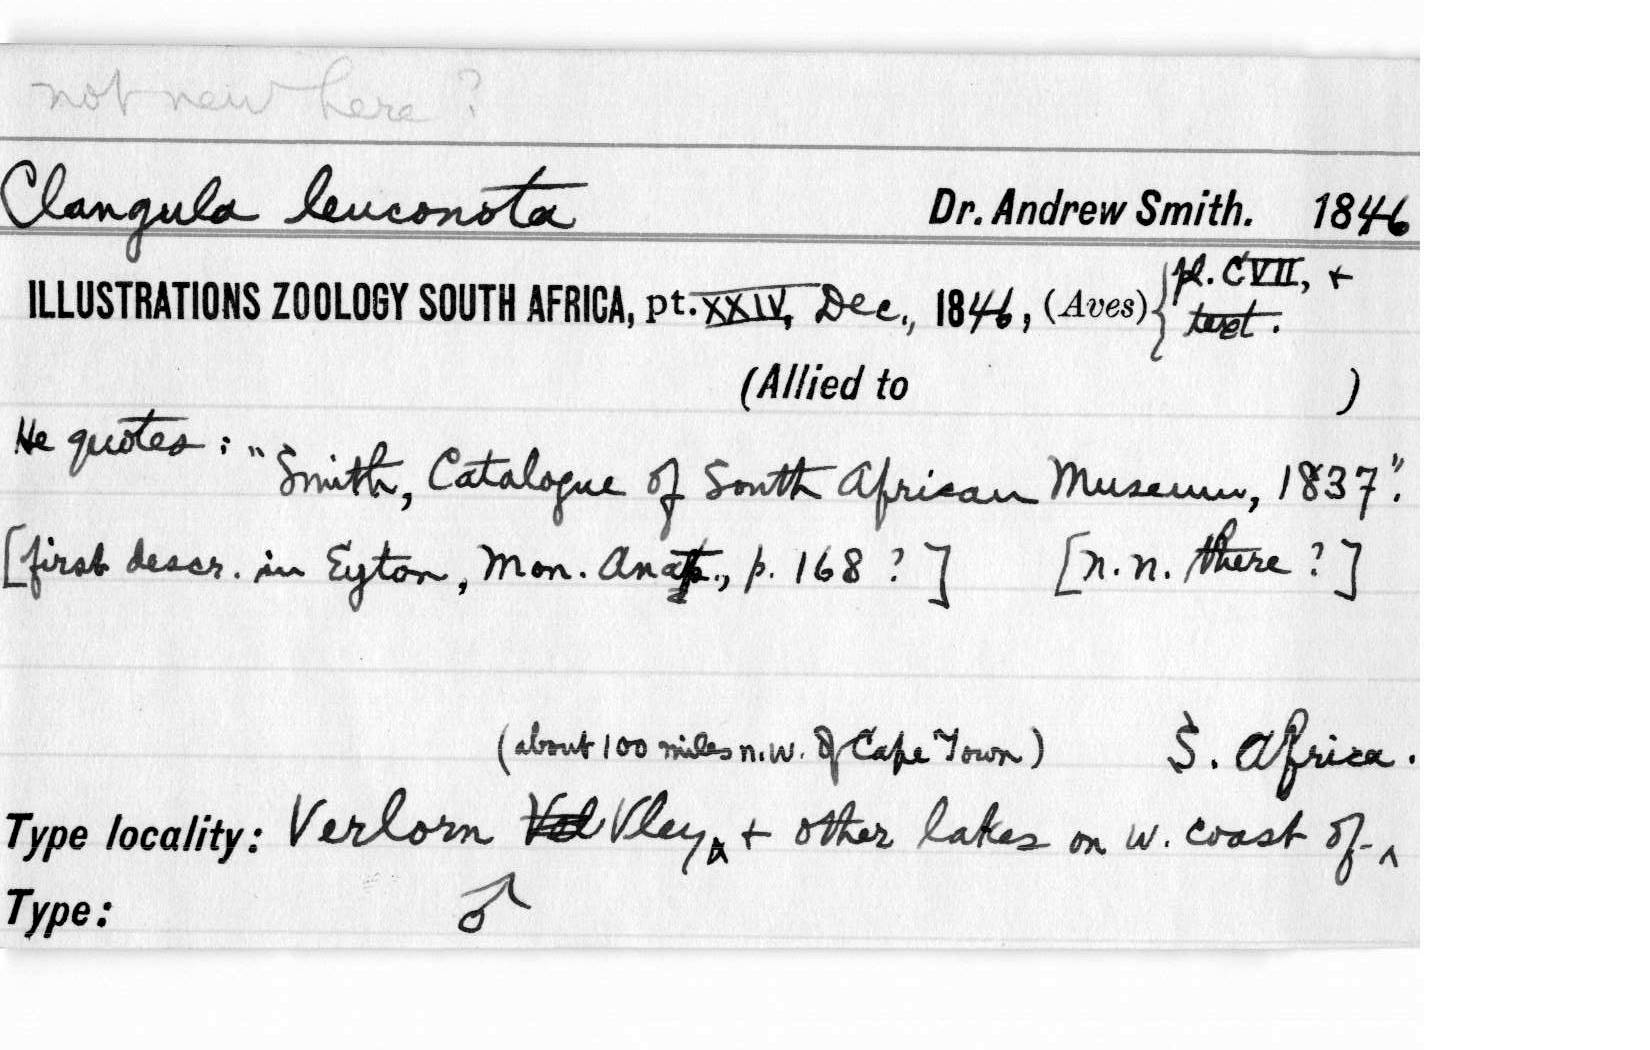 not new here ?
Clangula leuconota Dr. Andrew Smith. 1846
ILLUSTRATIONS ZOOLOGY SOUTH AFRICA, pt. XXIV, Dec., 1846, (Aves) { pl. CVII, +
text.
(Allied to )
He quotes : "Smith, Catalogue of South African Museum, 1837".
[first descr. in Eyton, Mon. Anat., p. 168 ? ] [n. n. there ? ]
(about 100 miles n.w. of Cape Town) S. Africa.
Type locality: Verlorn Vley, + other lakes on W. coast of - ^
Type: ♂